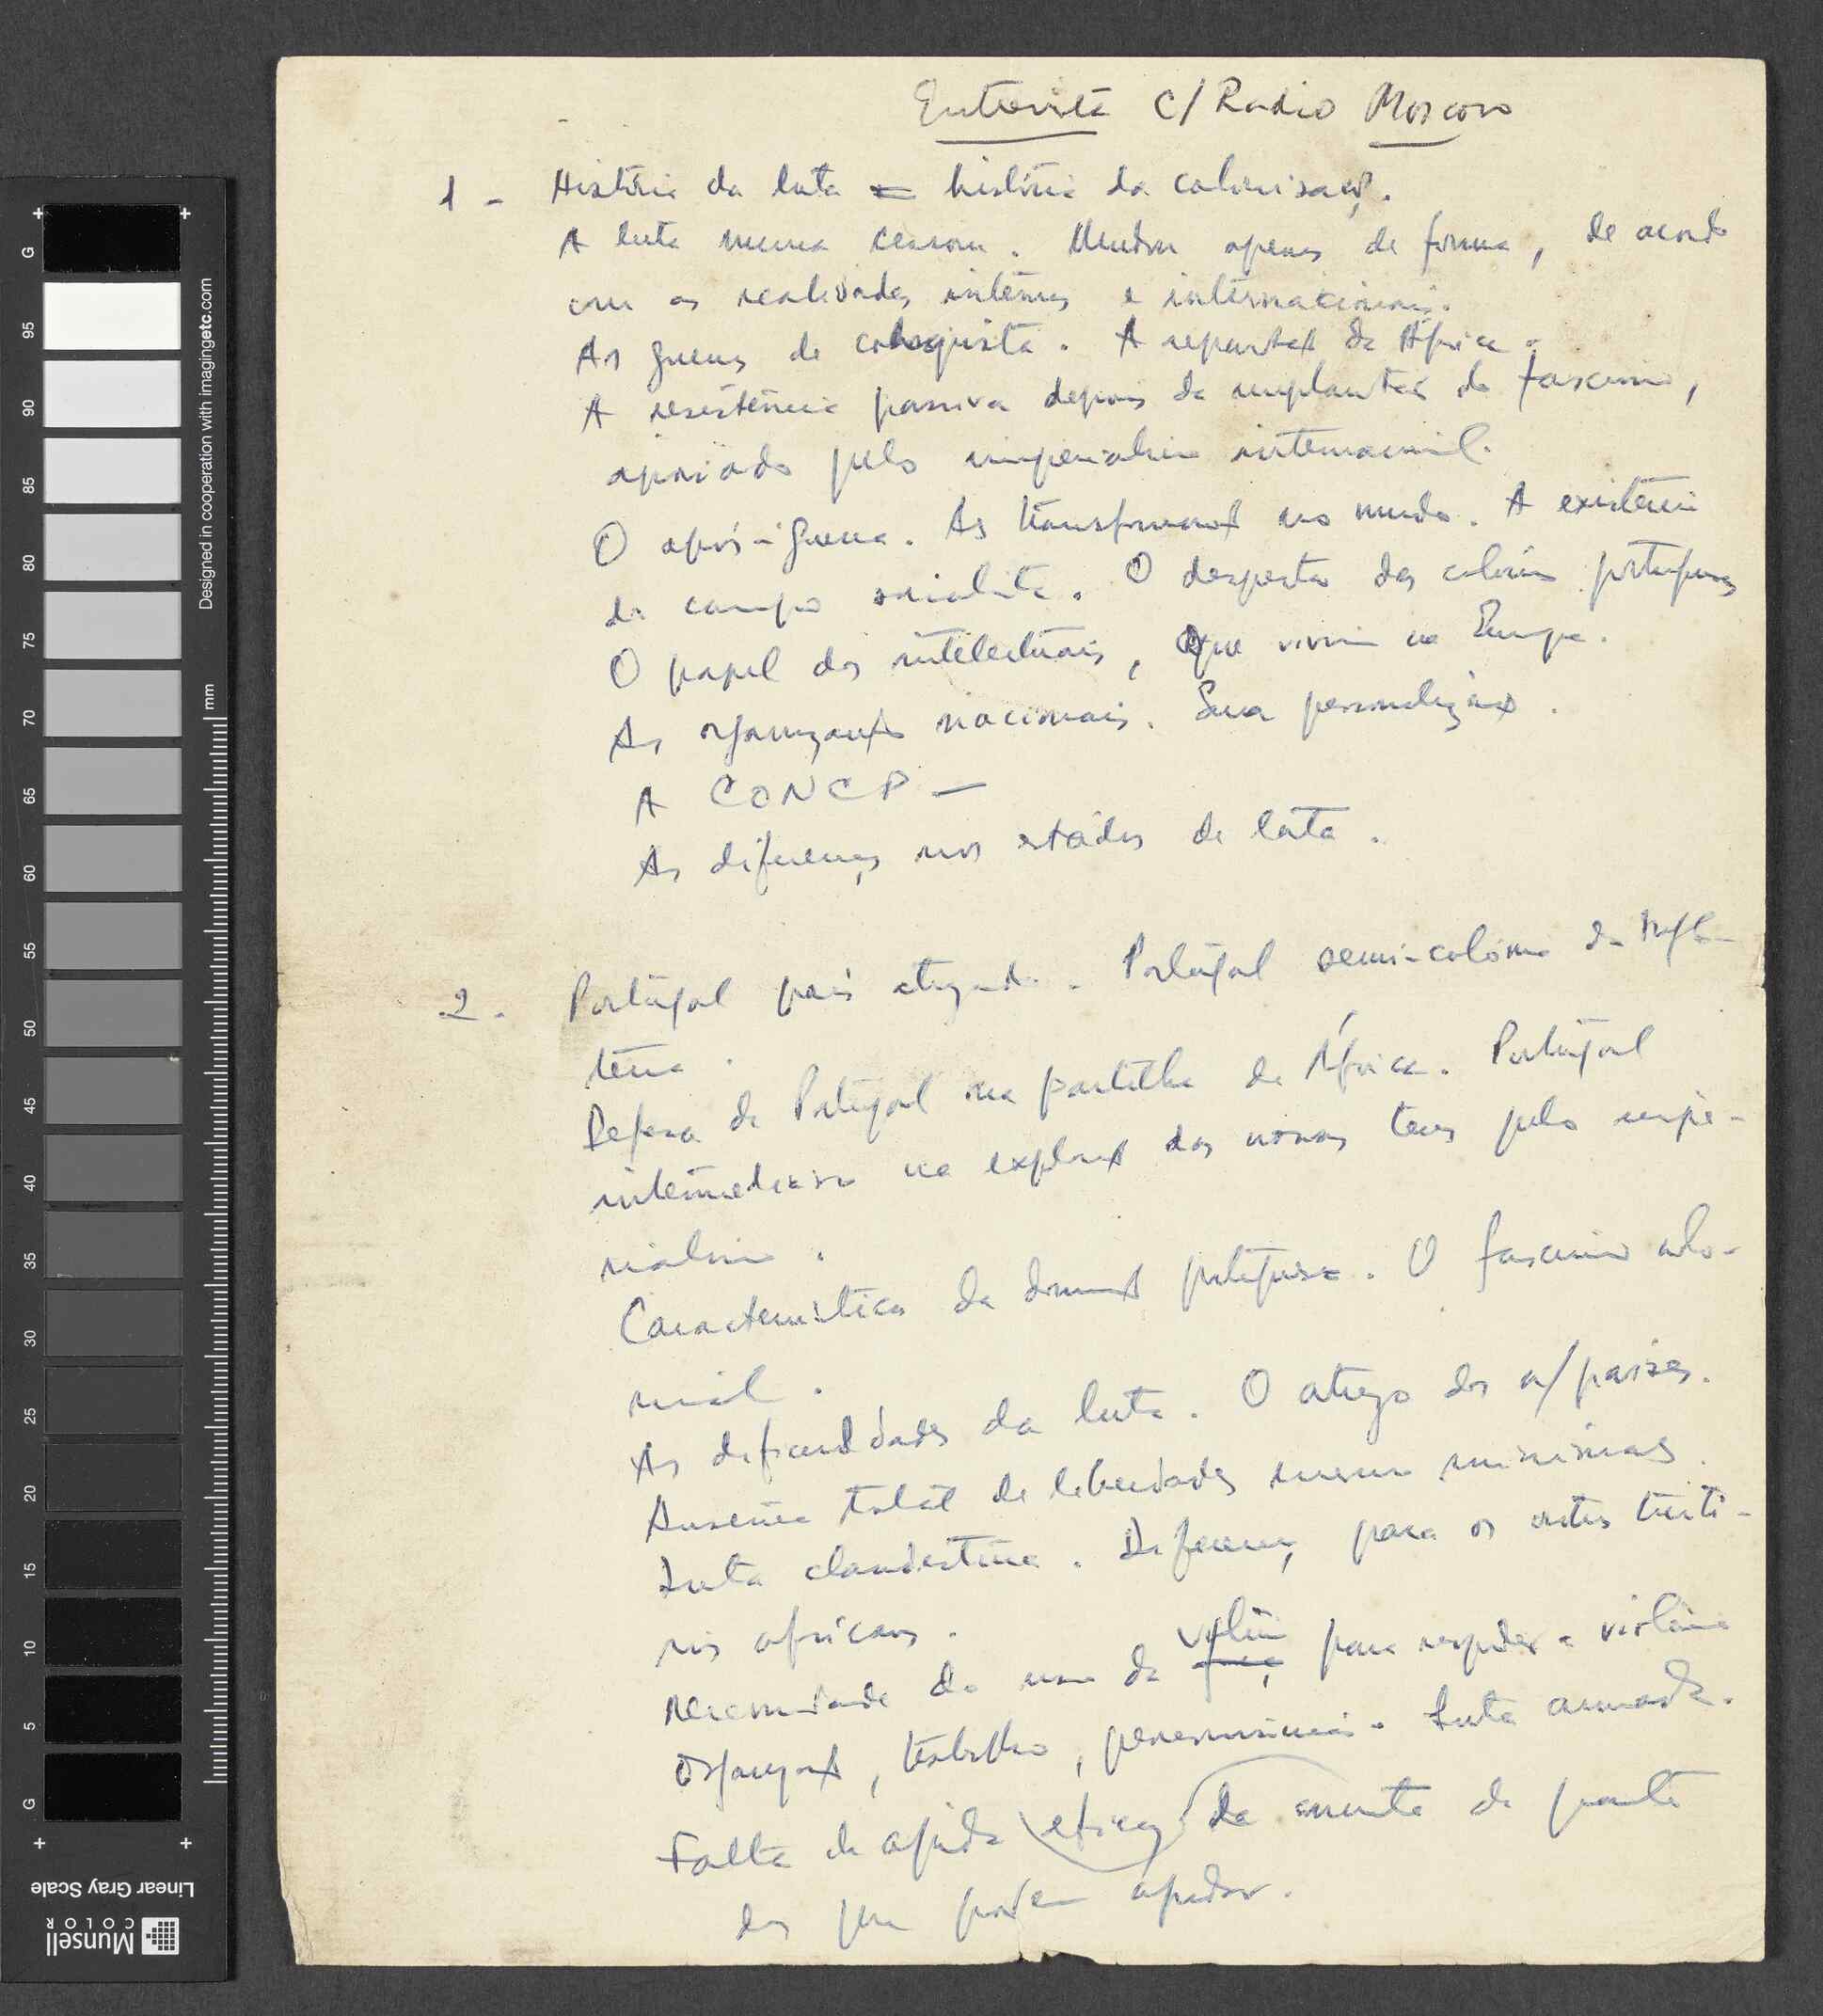 Entrevista c/ Radio Moscovo
1 - História da luta = história da colonisação.
A luta nunca cessou. Mudou apenas de forma, de acordo
com as realidades internas e internacionais.
As guerras de conquista. A repartição da África.
A resistência passiva depois da implantação do fascismo,
apoiado pelo imperialismo internacional.
O após-guerra. As transformações no mundo. A existência
do campo socialista. O despertar das colónias portuguesas
O papel dos intelectuais, que vivem na Europa.
As organizações nacionais. Sua
A CONCP —
As diferenças nos estádios de luta.
2. Portugal país atrazado. Portugal semi-colónia da Ingla-
terra.
Defesa de Portugal na partilha de África. Portugal
intermediário na exploração das nossas terras pelo impe-
rialismo.
Características da dominação portuguesa. O fascismo colo-
nial.
As dificuldades da luta. O atrazo dos n/países.
Ausência total de liberdades mesmo mínimas.
Luta clandestina. Diferença para os outros territó-
rios africanos.
Necessidade do uso da violência para responder à violência
Organização, trabalho, perseverância. Luta armada.
Falta de ajuda eficaz da parte
dos que podem ajudar.
G
95
90
85
80
75
70
65
60
55
50
45
40
35
30
25
20
15
10
5
G
mm
Designed in cooperation with imagingetc.com
Linear Gray Scale
Munsell
COLOR